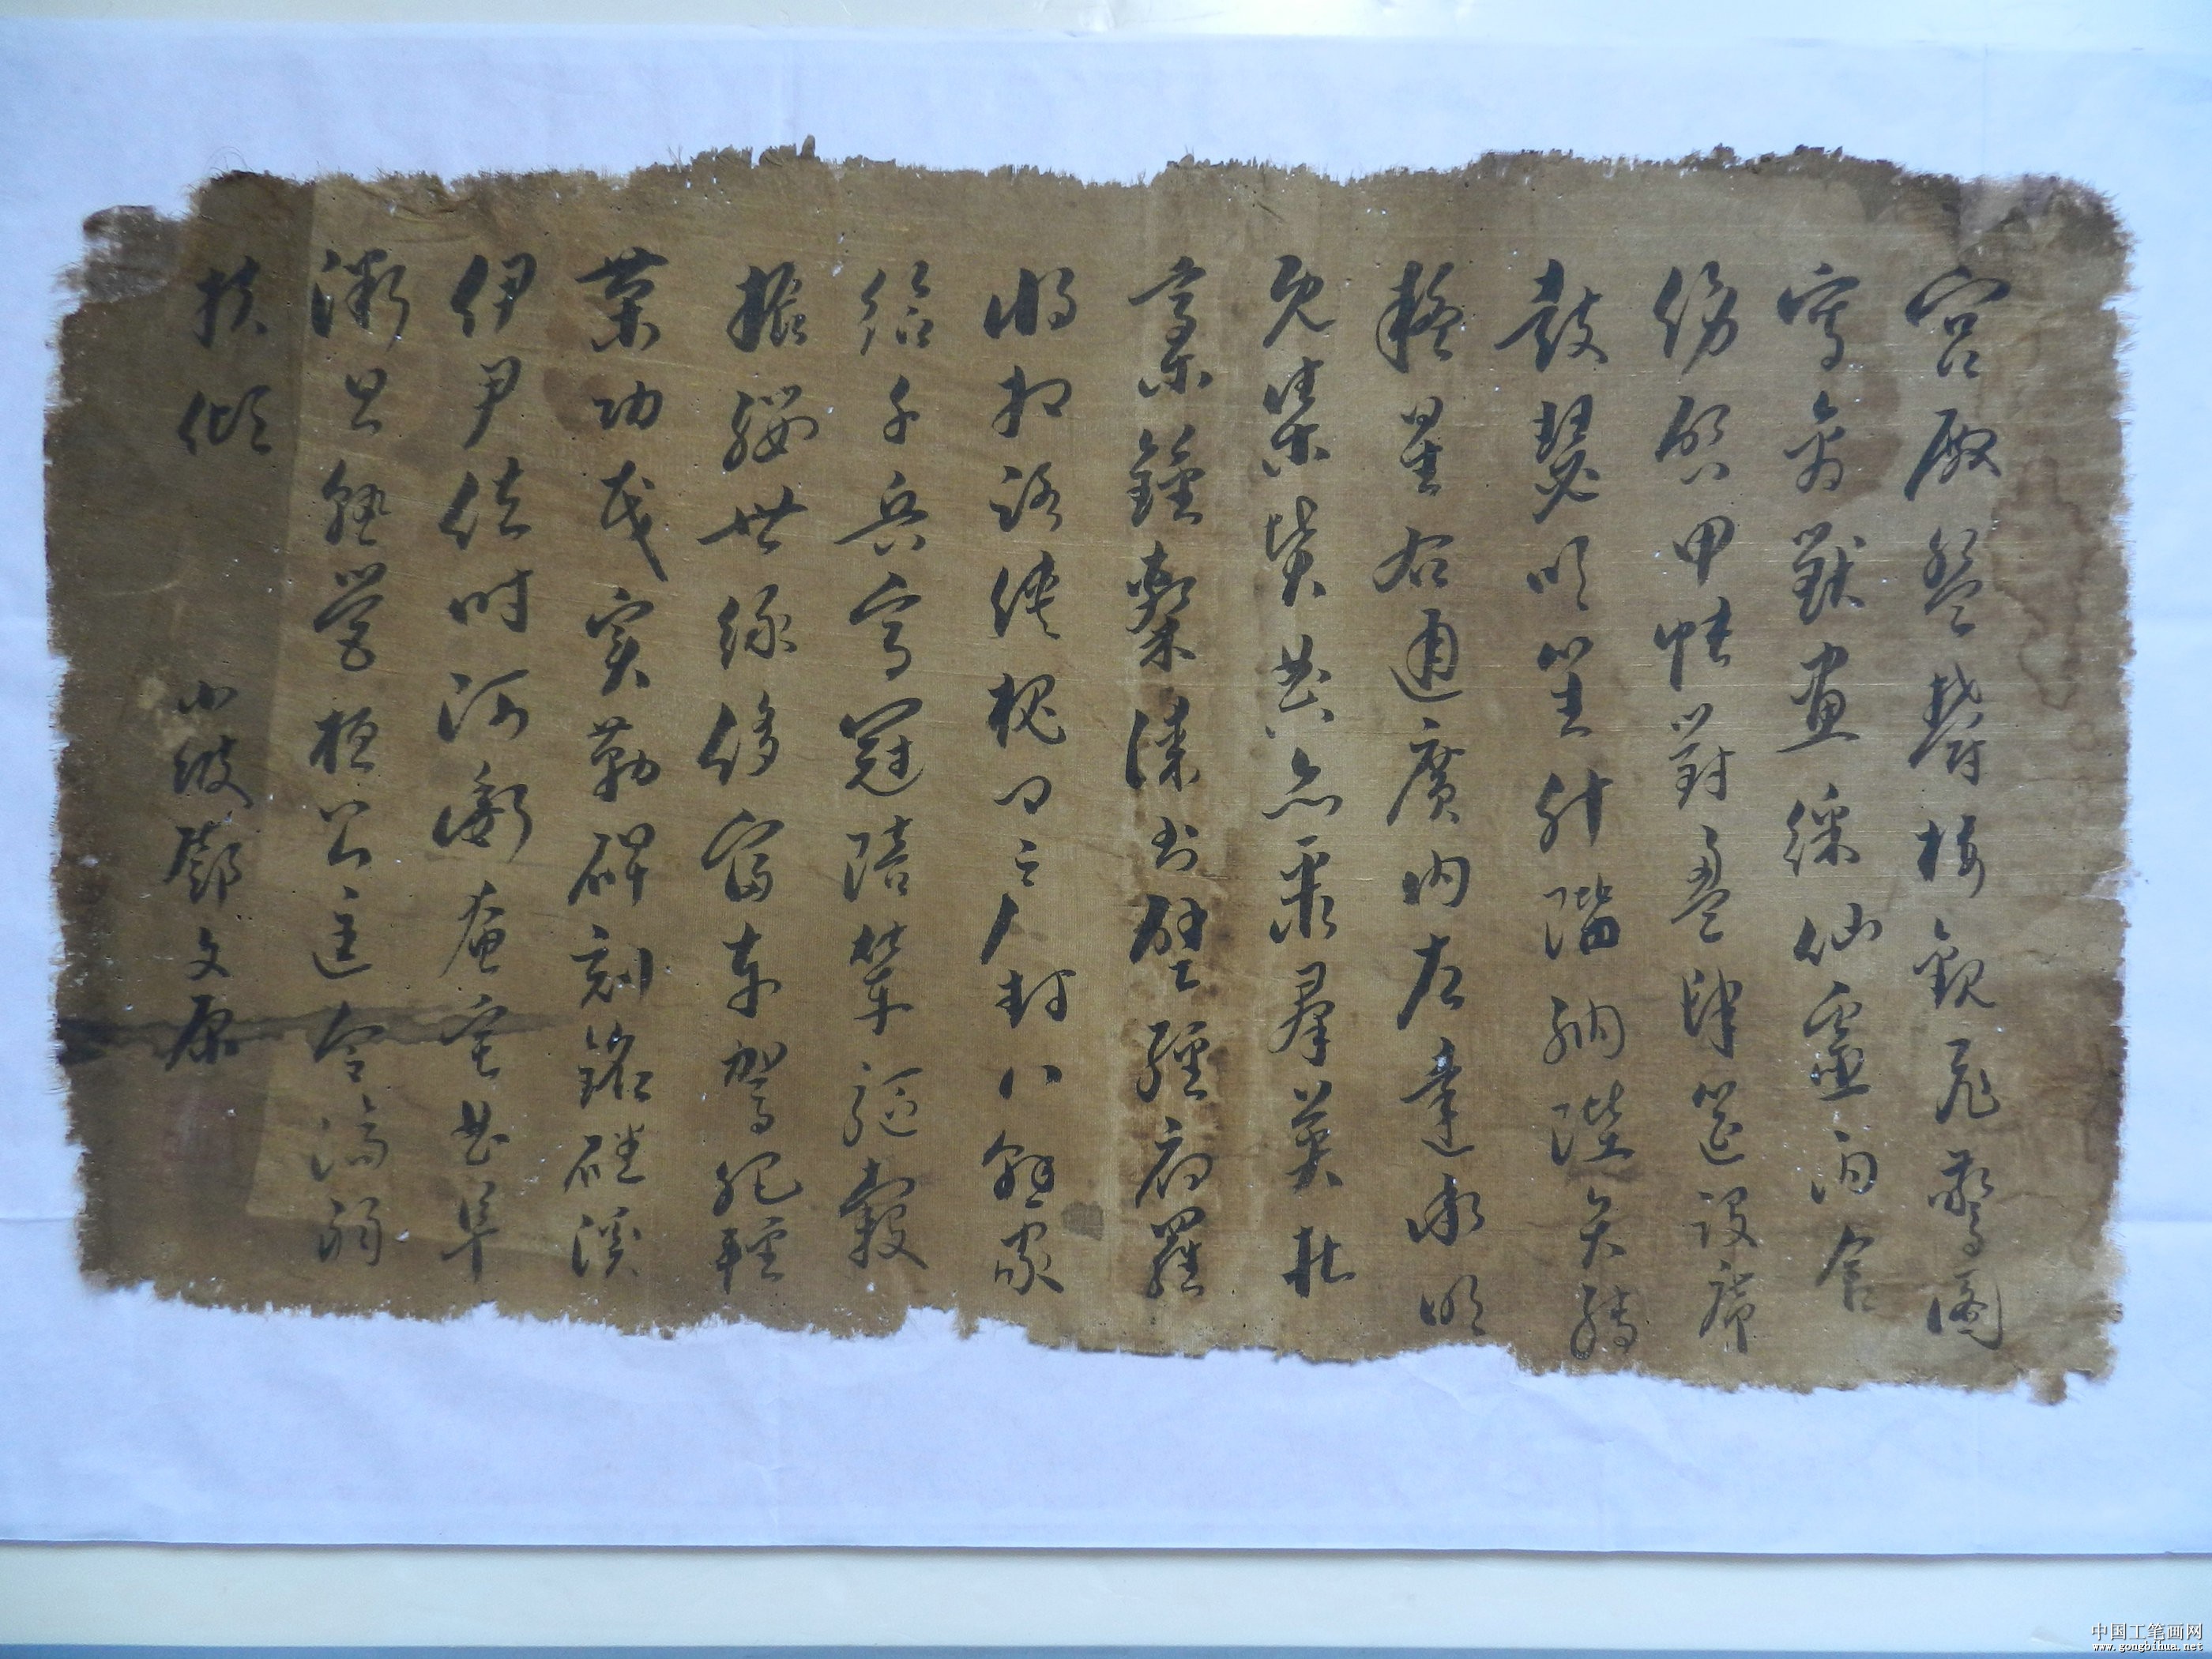 宮殿盤鬱樓觀飛驚圖
寫禽獸畫綵仙靈丙舍
傍啟甲帳對楹肆筵設席
鼓瑟吹笙升階納陛弁轉
疑星右通廣內左達承明
既集墳典亦聚羣英杜
稾鍾隸漆書壁經府羅
將相路俠槐卿戶封八縣家
給千兵高冠陪輦驅轂
振纓世祿侈富車駕肥輕
策功茂實勒碑刻銘磻溪
伊尹佐時阿衡奄宅曲阜
微旦孰營桓公匡合濟弱
扶傾
小鄧文原
中国工笔画网
www.gongbihua.net